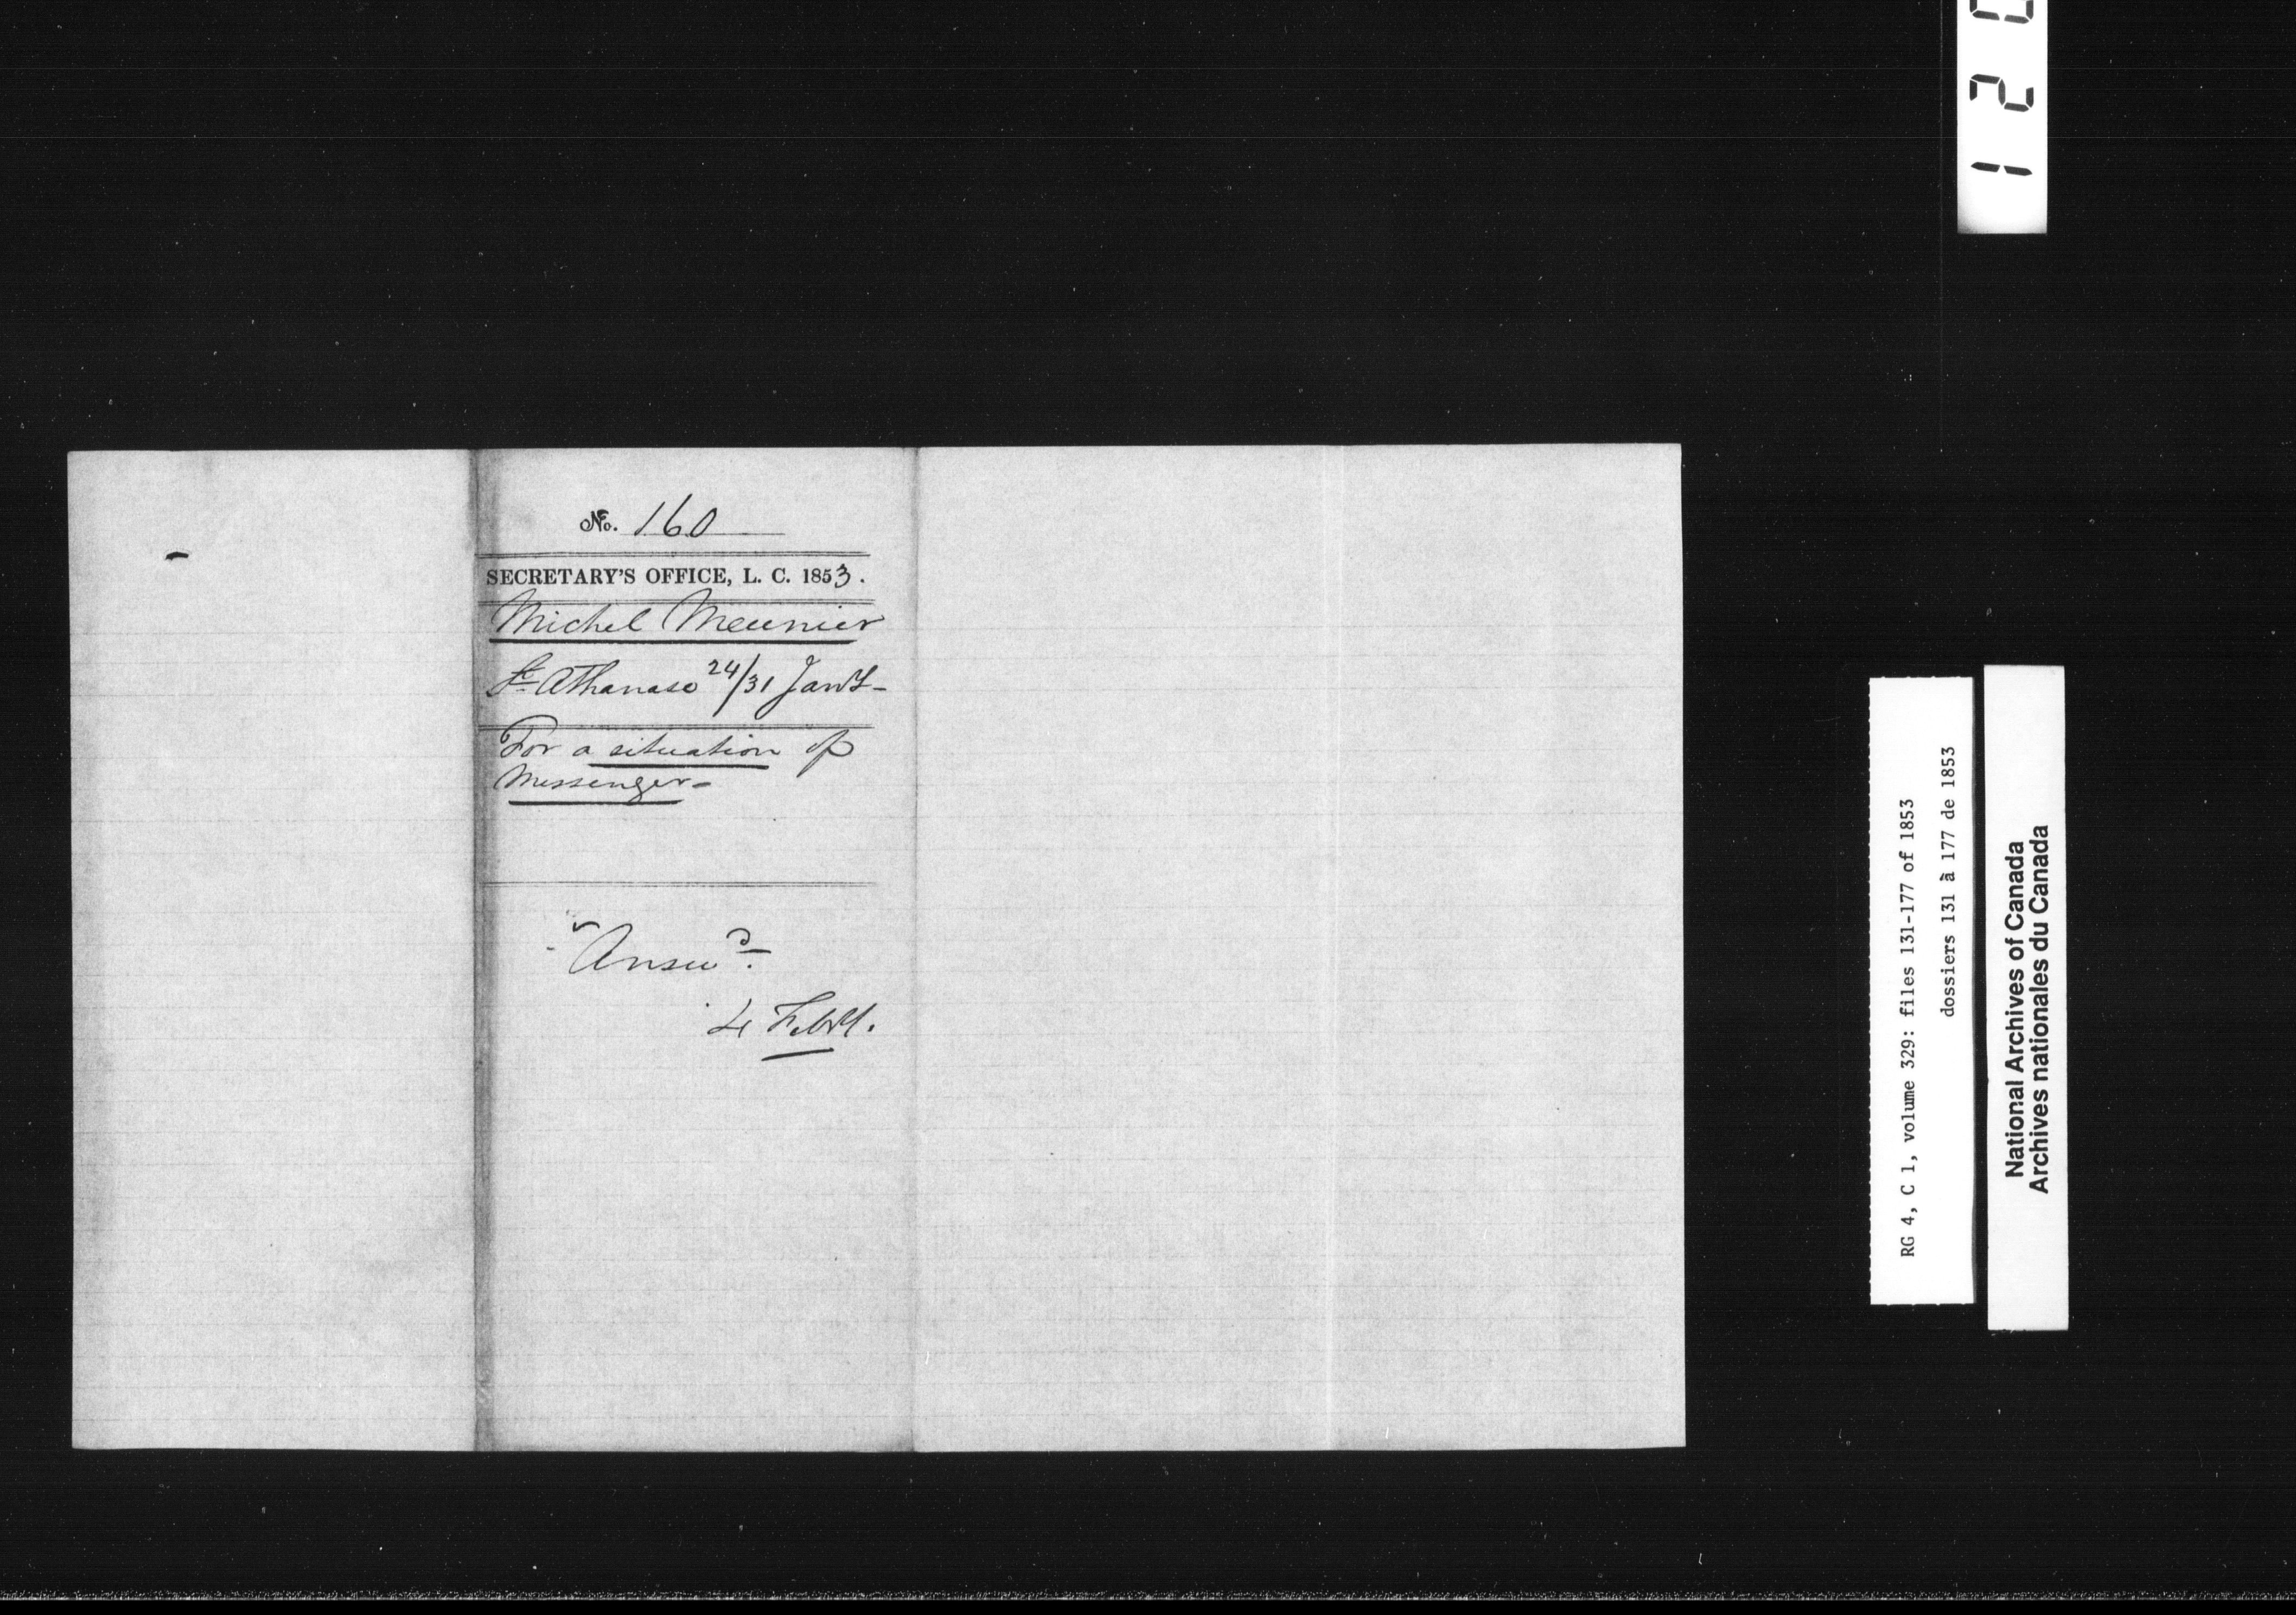 No. 160
SECRETARY'S OFFICE, L. C. 1853.
Michel Meunier
St Athanase 24/31 Jany-
For a situation of
Messenger-
Answd.
4 Feby.
RG 4, C 1, volume 329: files 131-177 of 1853
dossiers 131 à 177 de 1853
National Archives of Canada
Archives nationales du Canada